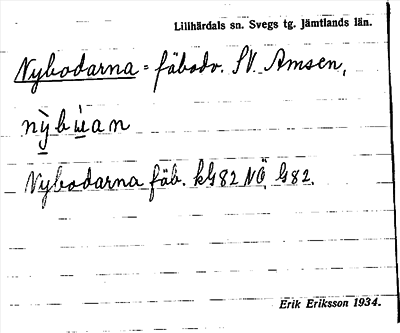 Lillhärdals sn. Svegs tg. Jämtlands län.
Nybodarna = fäbodv. SV. Amsen,
nỳbùan
Nybodarna fäb. kG82 NÖ G82.
Erik Eriksson 1934.